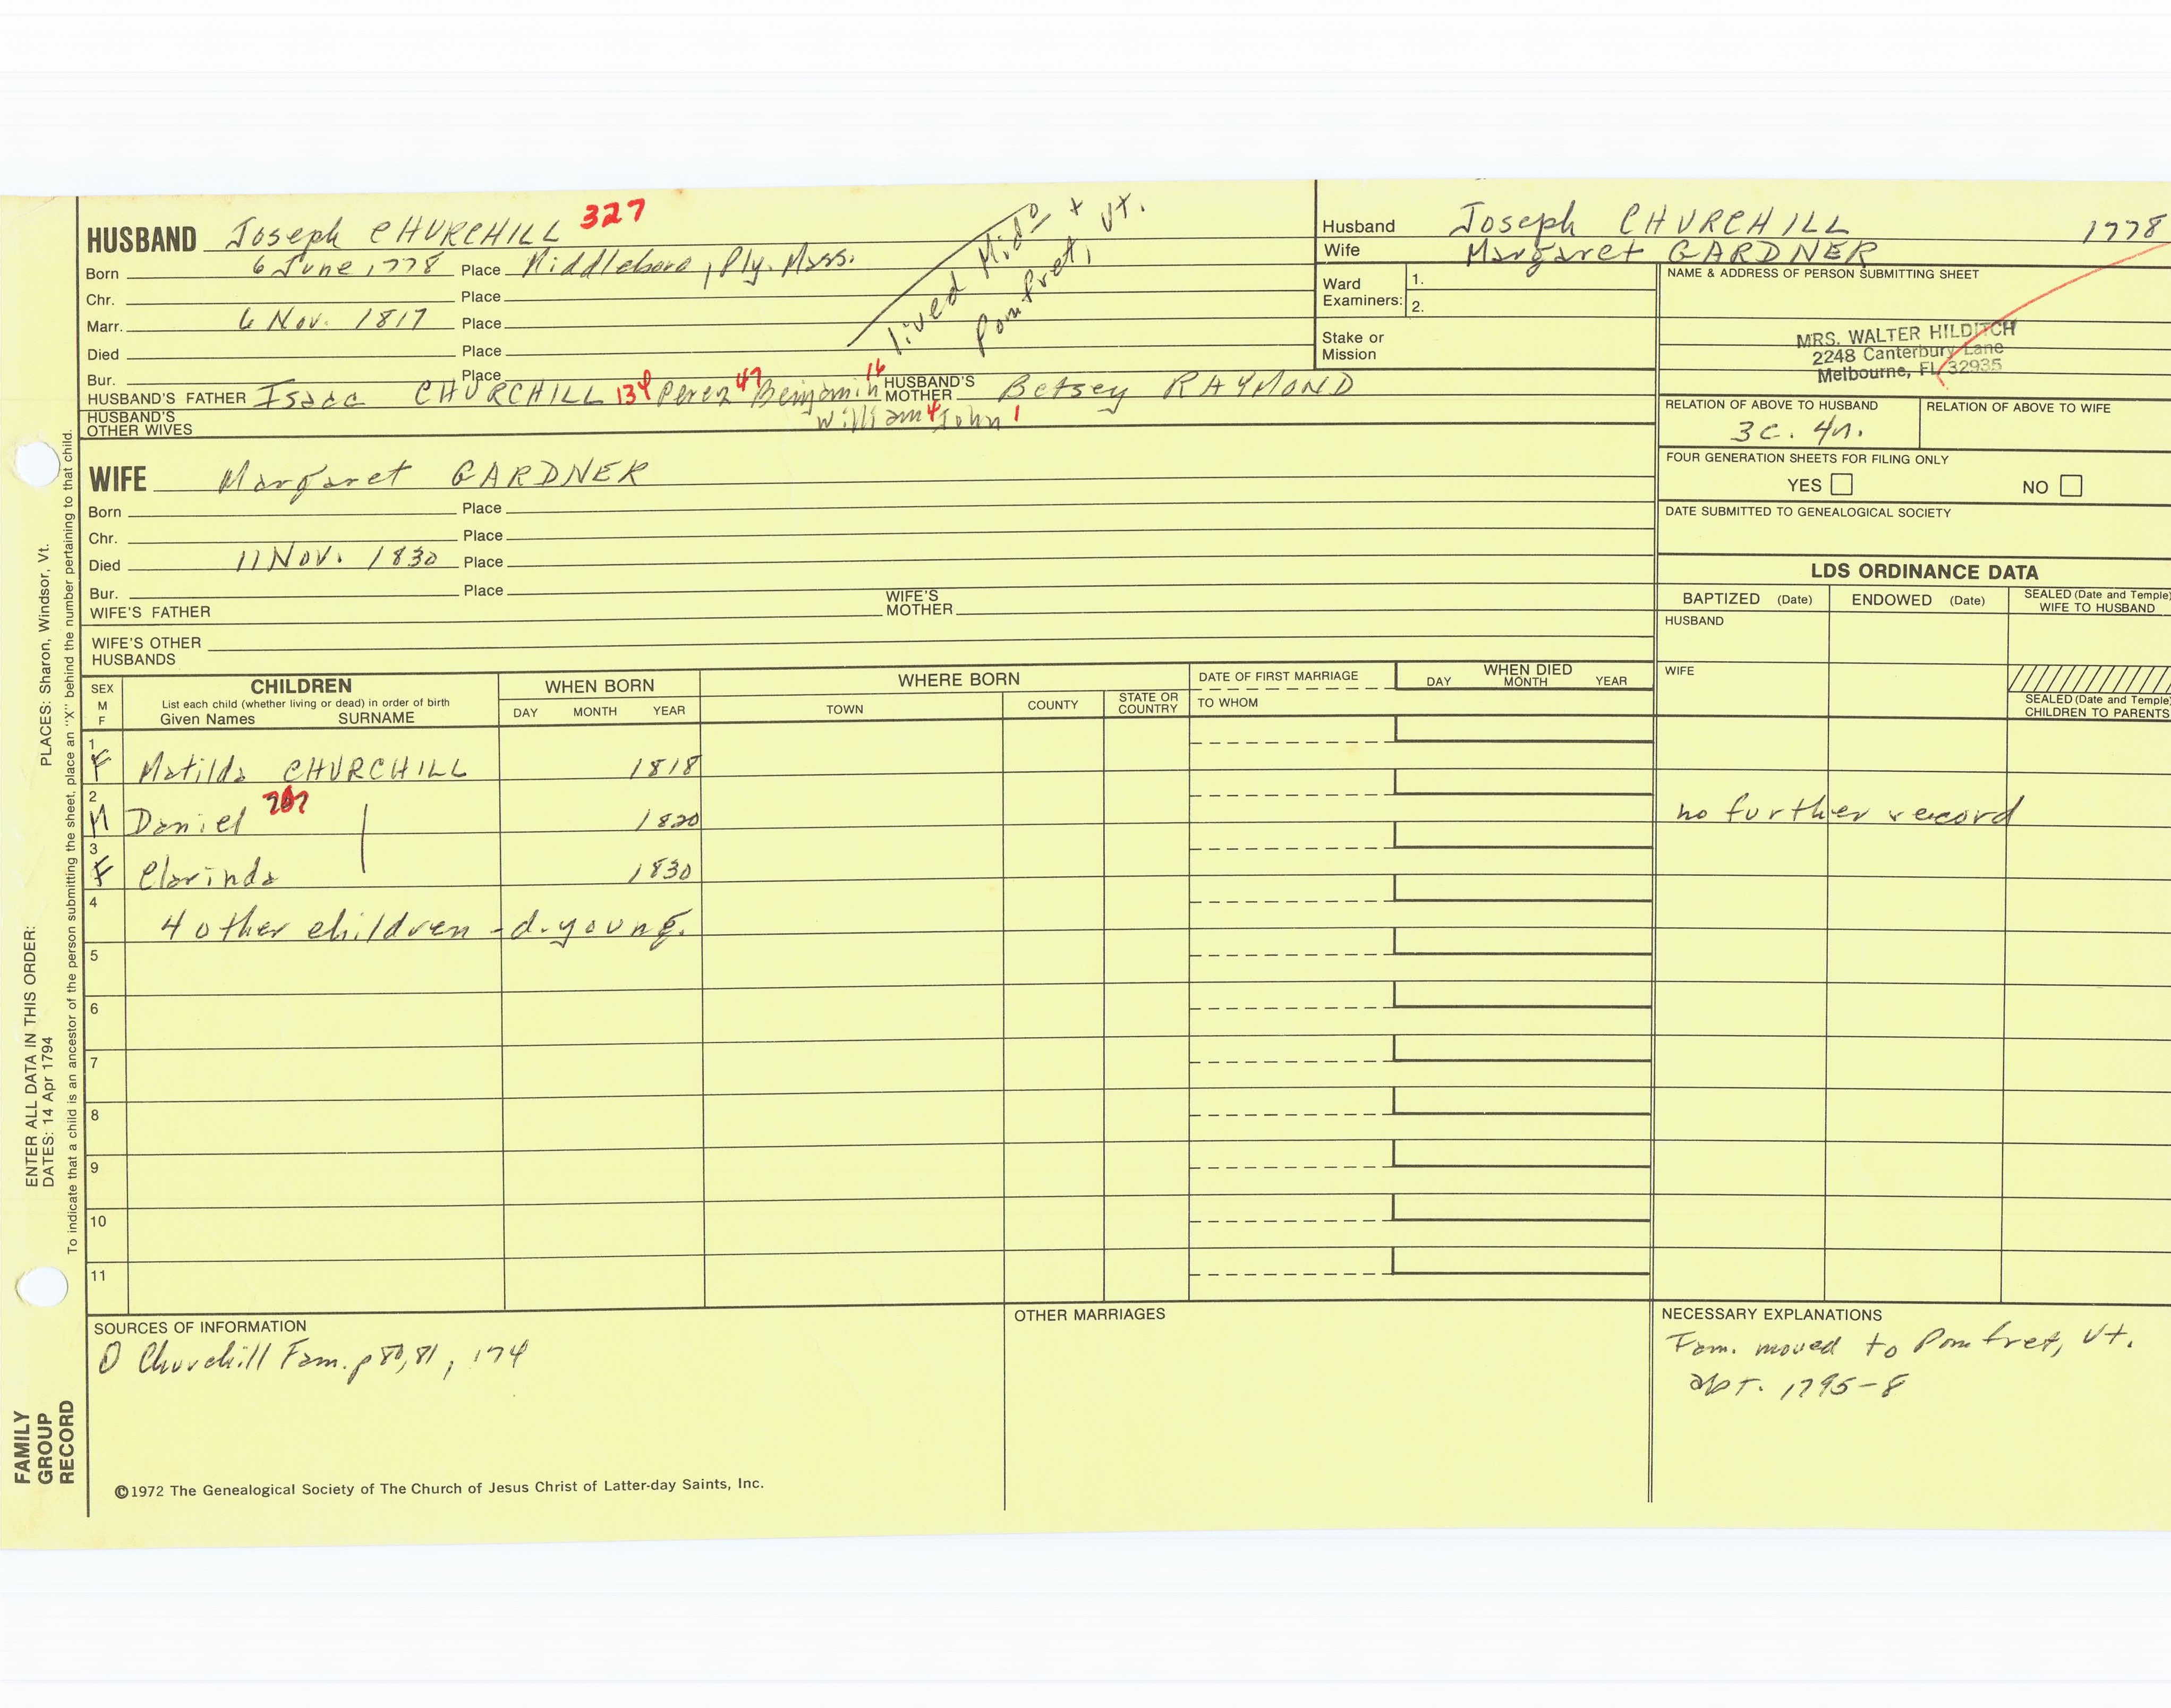 HUSBAND Joseph CHURCHILL 327
Born 6 June 1778 Place Middleboro, Ply. Mass.
Chr. Place
Marr. 6 Nov. 1817 Place
Died Place
Bur. Place
lived Midº +
Pomfret, Vt.
HUSBAND'S FATHER Isaac CHURCHILL 134 Perez 47 Benjamin 16 HUSBAND'S MOTHER Betsey RAYMOND
William 4 John 1
HUSBAND'S OTHER WIVES
Husband Joseph CHURCHILL 1778
Wife Margaret GARDNER
Ward Examiners: 1.
2.
Stake or Mission
NAME & ADDRESS OF PERSON SUBMITTING SHEET
MRS. WALTER HILDITCH
2248 Canterbury Lane
Melbourne, FL 32935
RELATION OF ABOVE TO HUSBAND RELATION OF ABOVE TO WIFE
3c. 4r.
FOUR GENERATION SHEETS FOR FILING ONLY
YES NO
DATE SUBMITTED TO GENEALOGICAL SOCIETY
WIFE Margaret GARDNER
Born Place
Chr. Place
Died 11 Nov. 1830 Place
Bur. Place
WIFE'S FATHER WIFE'S MOTHER
WIFE'S OTHER HUSBANDS
LDS ORDINANCE DATA
BAPTIZED (Date) ENDOWED (Date) SEALED (Date and Temple) WIFE TO HUSBAND
HUSBAND
WIFE
SEALED (Date and Temple) CHILDREN TO PARENTS
SEX M F CHILDREN WHEN BORN WHERE BORN DATE OF FIRST MARRIAGE WHEN DIED
List each child (whether living or dead) in order of birth
Given Names SURNAME DAY MONTH YEAR TOWN COUNTY STATE OR COUNTRY TO WHOM DAY MONTH YEAR
1 F Matilda CHURCHILL 1818
2 M Daniel 1820 no further record
3 F Clarinda 1830
4 4 other children - d. young.
5
6
7
8
9
10
11
SOURCES OF INFORMATION
Churchill Fam. p 80, 81, 174
OTHER MARRIAGES
NECESSARY EXPLANATIONS
Fam. moved to Pomfret, Vt.
abt. 1795-8
©1972 The Genealogical Society of The Church of Jesus Christ of Latter-day Saints, Inc.
FAMILY
GROUP
RECORD
ENTER ALL DATA IN THIS ORDER:
DATES: 14 Apr 1794 PLACES: Sharon, Windsor, Vt.
To indicate that a child is an ancestor of the person submitting the sheet, place an "X" behind the number pertaining to that child.